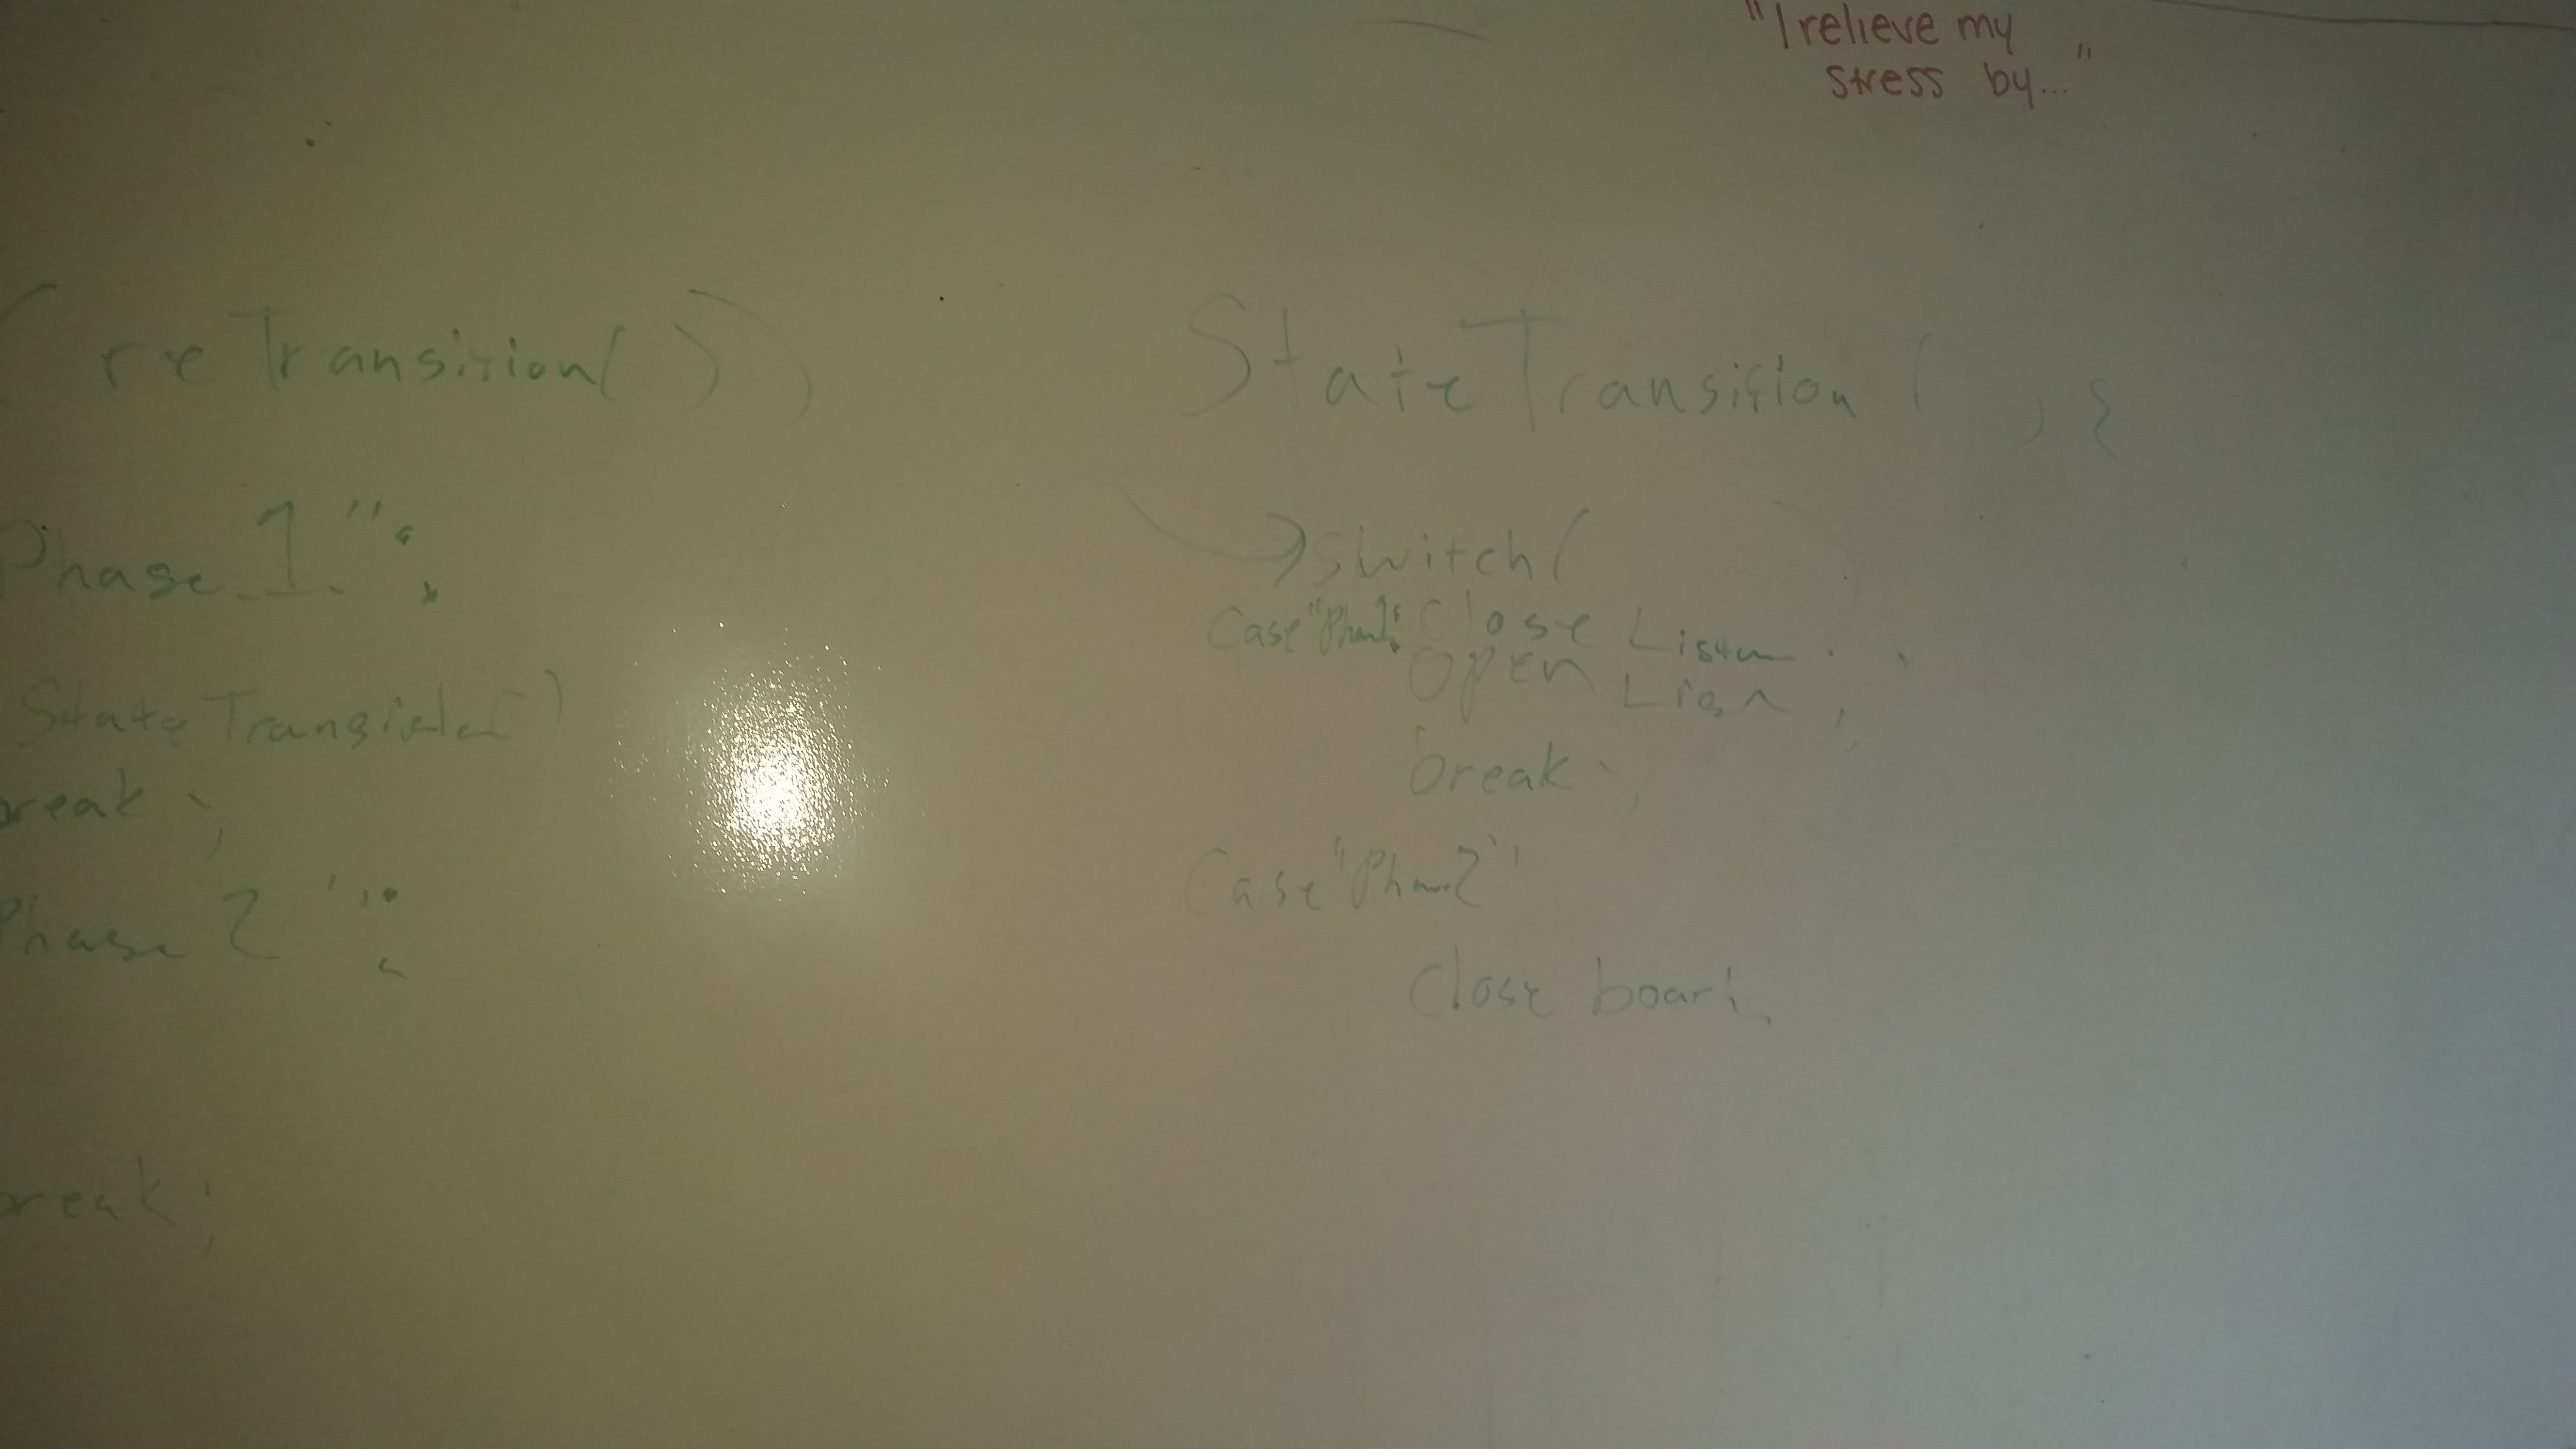 "I relieve my
stress by..."
(reTransition())
Phase 1":
State
reak;
Phase 2":
reak;
StateTransition( ) {
switch( )
Case "Pha 1": Close Listen
Open
break;
Case "Pha 2"
Close boar